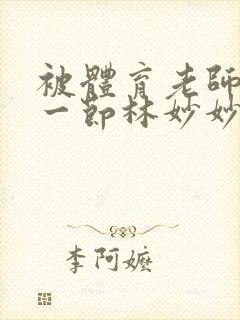 被體育老師
一節林妙妙
李阿嬤